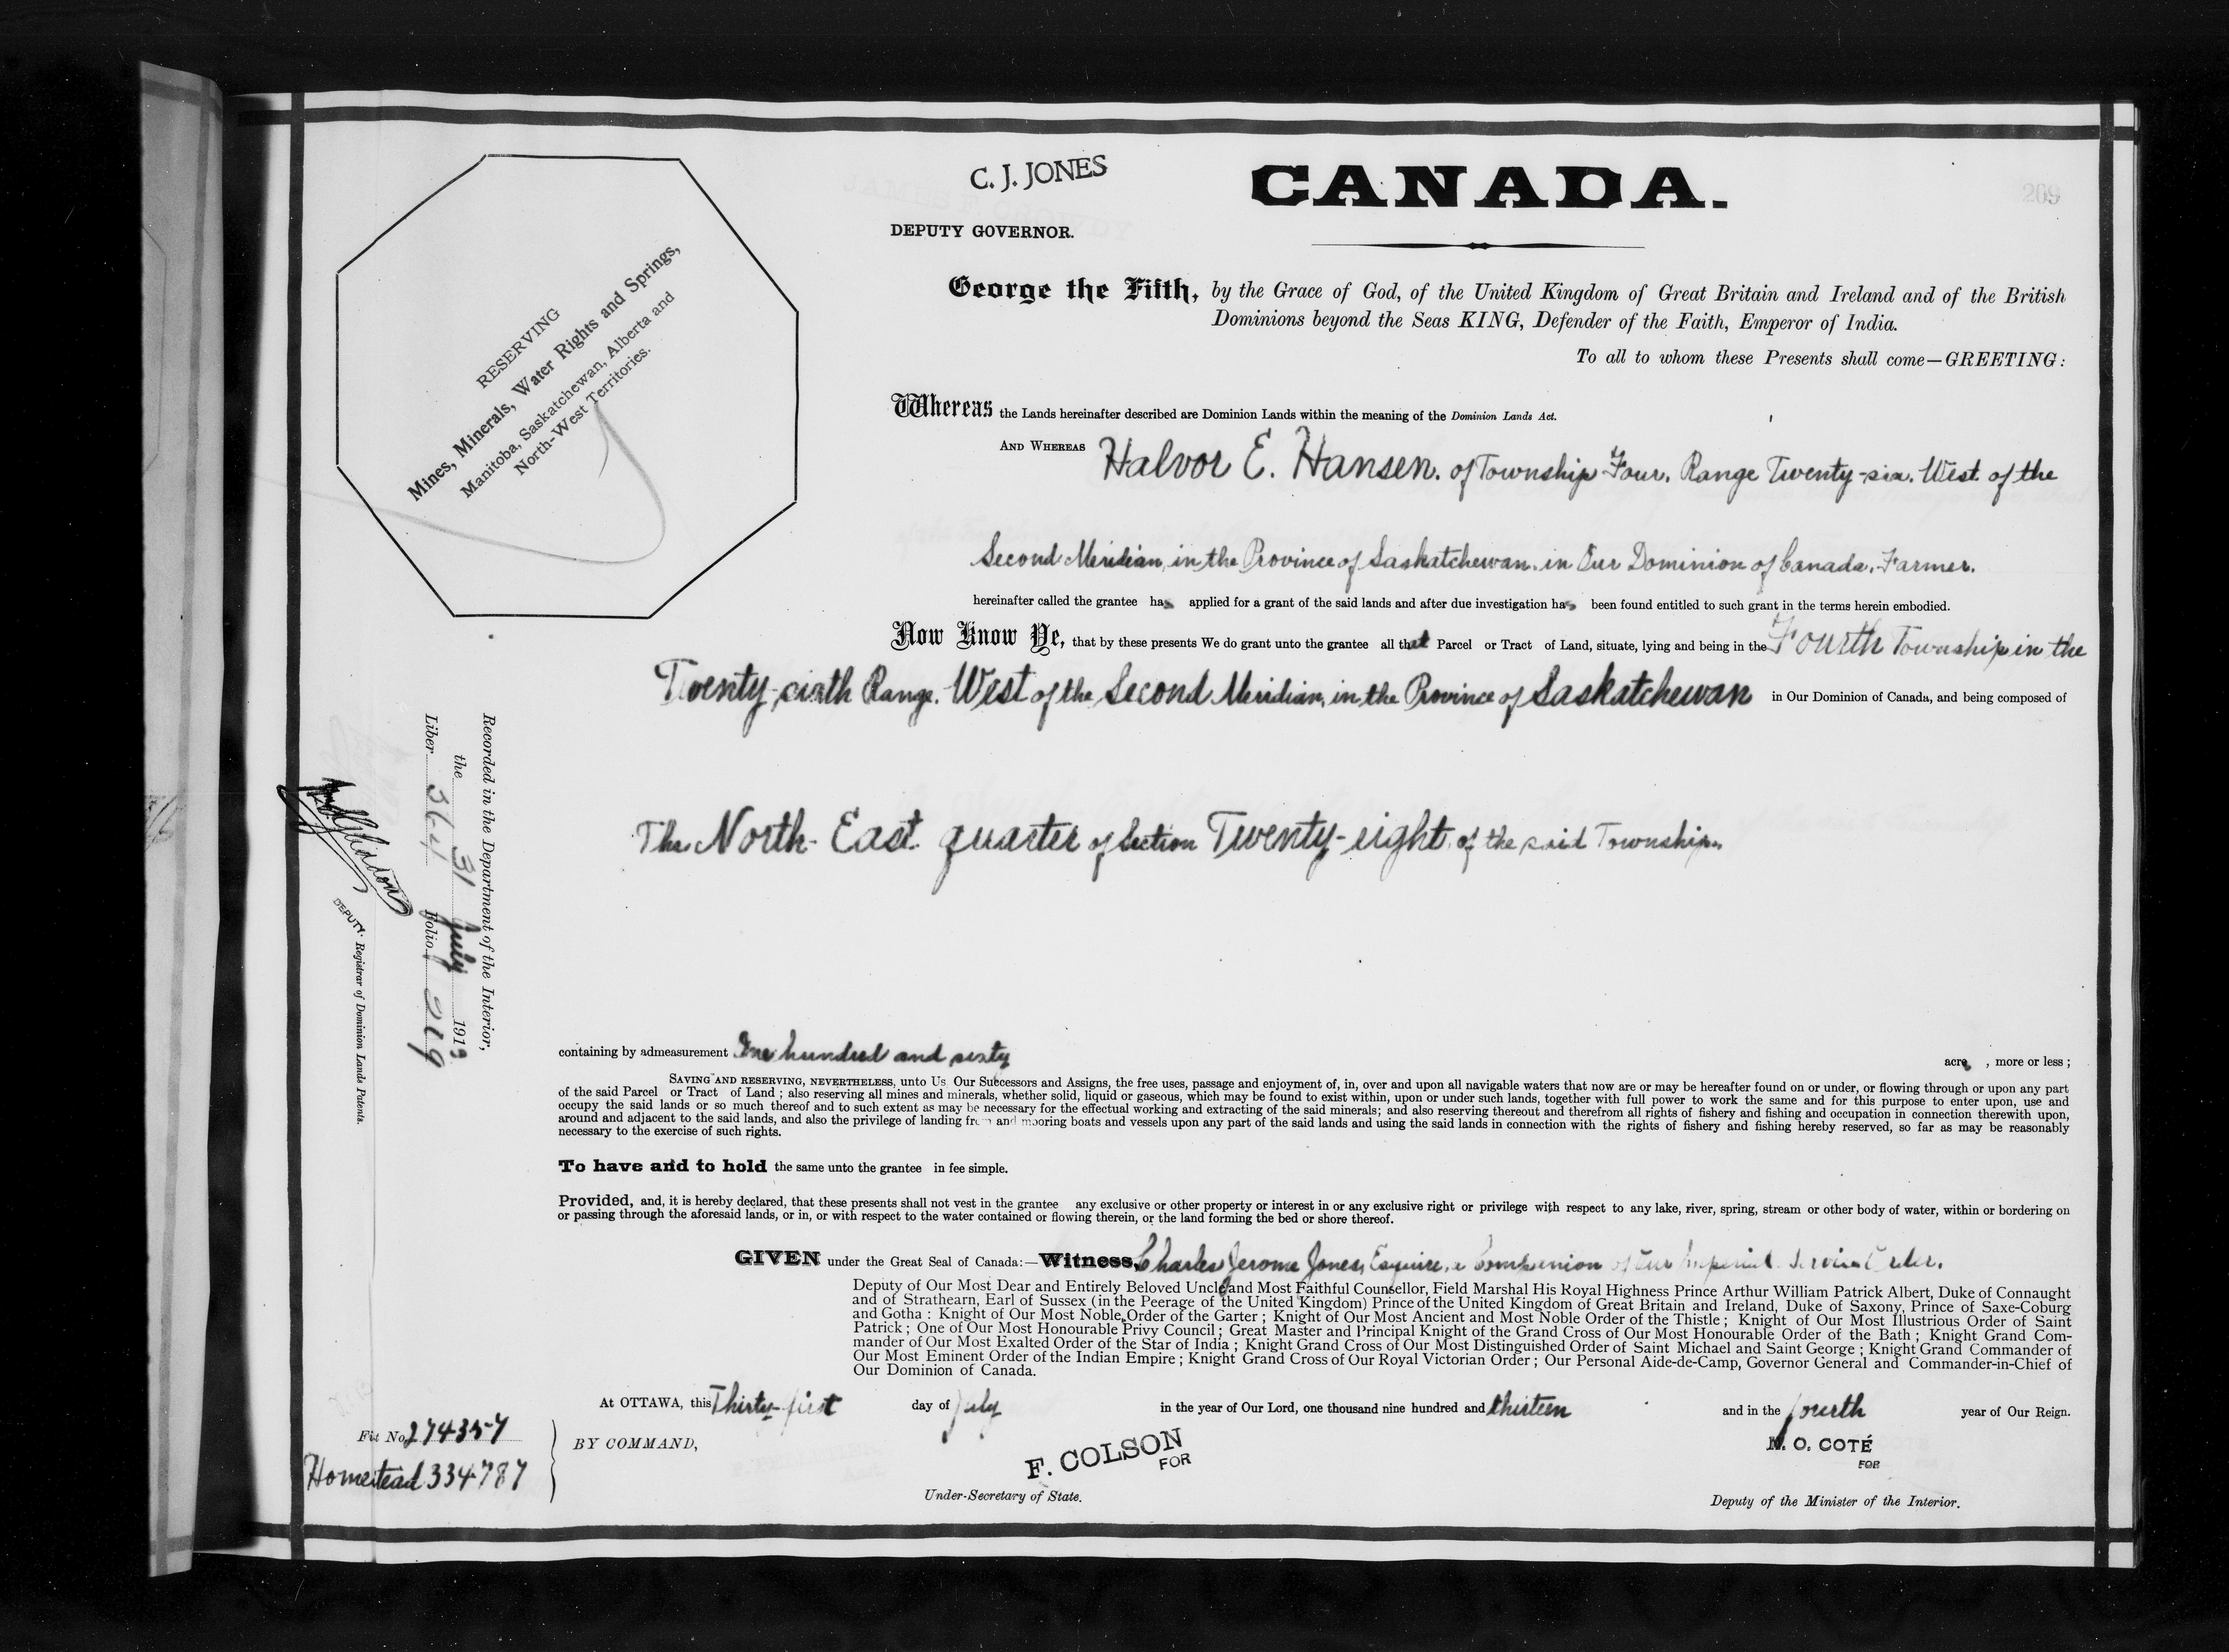 C. J. JONES
DEPUTY GOVERNOR.
CANADA.
269
RESERVING
Mines, Minerals, Water Rights and Springs,
Manitoba, Saskatchewan, Alberta and
North-West Territories.
George the Fifth, by the Grace of God, of the United Kingdom of Great Britain and Ireland and of the British
Dominions beyond the Seas KING, Defender of the Faith, Emperor of India.
To all to whom these Presents shall come—GREETING:
Whereas the Lands hereinafter described are Dominion Lands within the meaning of the Dominion Lands Act.
AND WHEREAS Halvor E. Hansen. of Township Four, Range Twenty-six. West of the
Second Meridian, in the Province of Saskatchewan. in Our Dominion of Canada, Farmer.
hereinafter called the grantee has applied for a grant of the said lands and after due investigation has been found entitled to such grant in the terms herein embodied.
Now Know Ye, that by these presents We do grant unto the grantee all that Parcel or Tract of Land, situate, lying and being in the Fourth Township in the
Twenty-sixth Range. West of the Second Meridian, in the Province of Saskatchewan in Our Dominion of Canada, and being composed of
The North-East quarter of Section Twenty-eight, of the said Township.
containing by admeasurement One hundred and sixty acre , more or less ;
SAVING AND RESERVING, NEVERTHELESS, unto Us Our Successors and Assigns, the free uses, passage and enjoyment of, in, over and upon all navigable waters that now are or may be hereafter found on or under, or flowing through or upon any part
of the said Parcel or Tract of Land ; also reserving all mines and minerals, whether solid, liquid or gaseous, which may be found to exist within, upon or under such lands, together with full power to work the same and for this purpose to enter upon, use and
occupy the said lands or so much thereof and to such extent as may be necessary for the effectual working and extracting of the said minerals; and also reserving thereout and therefrom all rights of fishery and fishing and occupation in connection therewith upon,
around and adjacent to the said lands, and also the privilege of landing from and mooring boats and vessels upon any part of the said lands and using the said lands in connection with the rights of fishery and fishing hereby reserved, so far as may be reasonably
necessary to the exercise of such rights.
To have and to hold the same unto the grantee in fee simple.
Provided, and, it is hereby declared, that these presents shall not vest in the grantee any exclusive or other property or interest in or any exclusive right or privilege with respect to any lake, river, spring, stream or other body of water, within or bordering on
or passing through the aforesaid lands, or in, or with respect to the water contained or flowing therein, or the land forming the bed or shore thereof.
GIVEN under the Great Seal of Canada:—Witness, Charles Jerome Jones, Esquire, a Companion of Our Imperial Service Order.
Deputy of Our Most Dear and Entirely Beloved Uncle and Most Faithful Counsellor, Field Marshal His Royal Highness Prince Arthur William Patrick Albert, Duke of Connaught
and of Strathearn, Earl of Sussex (in the Peerage of the United Kingdom) Prince of the United Kingdom of Great Britain and Ireland, Duke of Saxony, Prince of Saxe-Coburg
and Gotha : Knight of Our Most Noble Order of the Garter ; Knight of Our Most Ancient and Most Noble Order of the Thistle ; Knight of Our Most Illustrious Order of Saint
Patrick ; One of Our Most Honourable Privy Council ; Great Master and Principal Knight of the Grand Cross of Our Most Honourable Order of the Bath ; Knight Grand Com-
mander of Our Most Exalted Order of the Star of India ; Knight Grand Cross of Our Most Distinguished Order of Saint Michael and Saint George ; Knight Grand Commander of
Our Most Eminent Order of the Indian Empire ; Knight Grand Cross of Our Royal Victorian Order ; Our Personal Aide-de-Camp, Governor General and Commander-in-Chief of
Our Dominion of Canada.
At OTTAWA, this Thirty-first day of July in the year of Our Lord, one thousand nine hundred and thirteen and in the fourth year of Our Reign.
BY COMMAND,
F. COLSON
FOR
Under-Secretary of State.
N. O. COTÉ
FOR
Deputy of the Minister of the Interior.
Recorded in the Department of the Interior,
the 31 July 1913
Liber 364 Folio 219
DEPUTY Registrar of Dominion Lands Patents.
File No. 274357
Homestead 334787